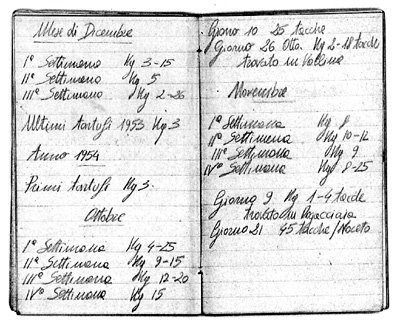 Mese di Dicembre
Iª Settimana Kg 3-15
IIª Settimana Kg 5
IIIª Settimana Kg 2-26
Ultimi tartufi 1953 Kg 3
Anno 1954
Primi tartufi Kg 3
Ottobre
Iª Settimana Kg 4-25
IIª Settimana Kg 9-15
IIIª Settimana Kg 12-20
IVª Settimana Kg 15
Giorno 10 25 tacche
Giorno 26 Otto. Kg 2-18 tacche
trovato in
Novembre
Iª Settimana Kg 8
IIª Settimana Kg 10-12
IIIª Settimana Kg 9
IVª Settimana Kg 8-25
Giorno 9 Kg 1-4 tacche
trovato in
Giorno 21 45 tacche/Noceto